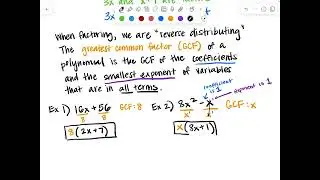 When factoring, we are "reverse distributing"
The greatest common factor (GCF) of a
polynomial is the GCF of the coefficients
and the smallest exponent of variables
that are in all terms.
coefficient is 1
exponent is 1
Ex 1) 16x + 56 GCF: 8 Ex 2) 8x² - x GCF: x
8 8 x x
8(2x+7) x(8x+1)